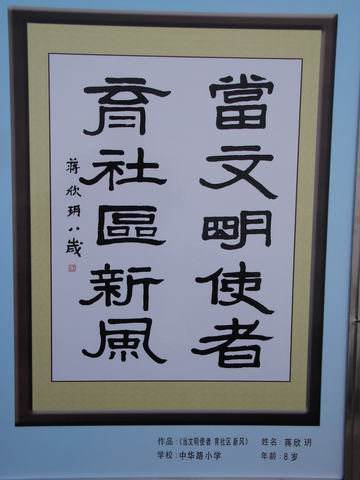 當文明使者
育社區新風
蒋欣玥八歲
作品：《当文明使者 育社区新风》 姓名：蒋欣 玥
学校：中华路小学 年龄：8 岁